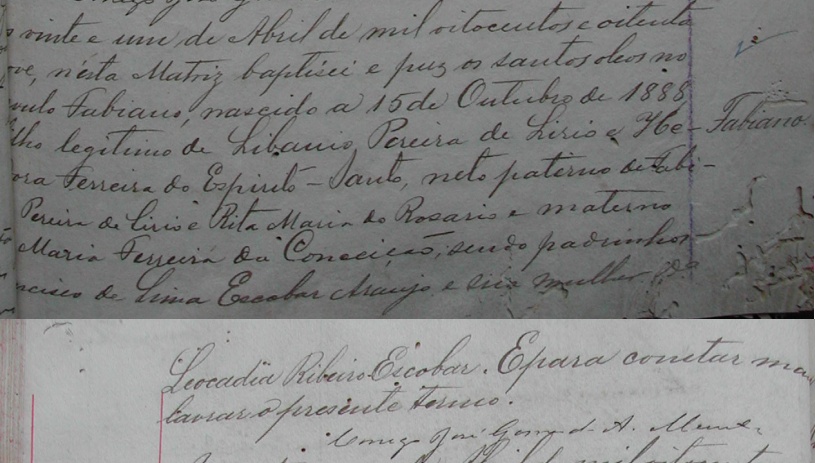 vinte e um de Abril de mil oitocentos e oitenta
ve, nésta Matriz baptisei e puz os santos oleos no
Fabiano, nascido a 15 de Outubro de 1888,
lho legitimo de Libanio Pereira de Lirio e He-
Fabiano
ora Ferreira do Espirito-Santo, neto paterno de Fabi-
Pereira de Lirio e Rita Maria do Rosario e materno
Maria Ferreira da Conceição, sendo padrinhos
ncisco de Lima Escobar Araujo e sua mulher
Leocadia Ribeiro Escobar. E para constar
lavrar o presente termo.
Conego José Gomes d. A.